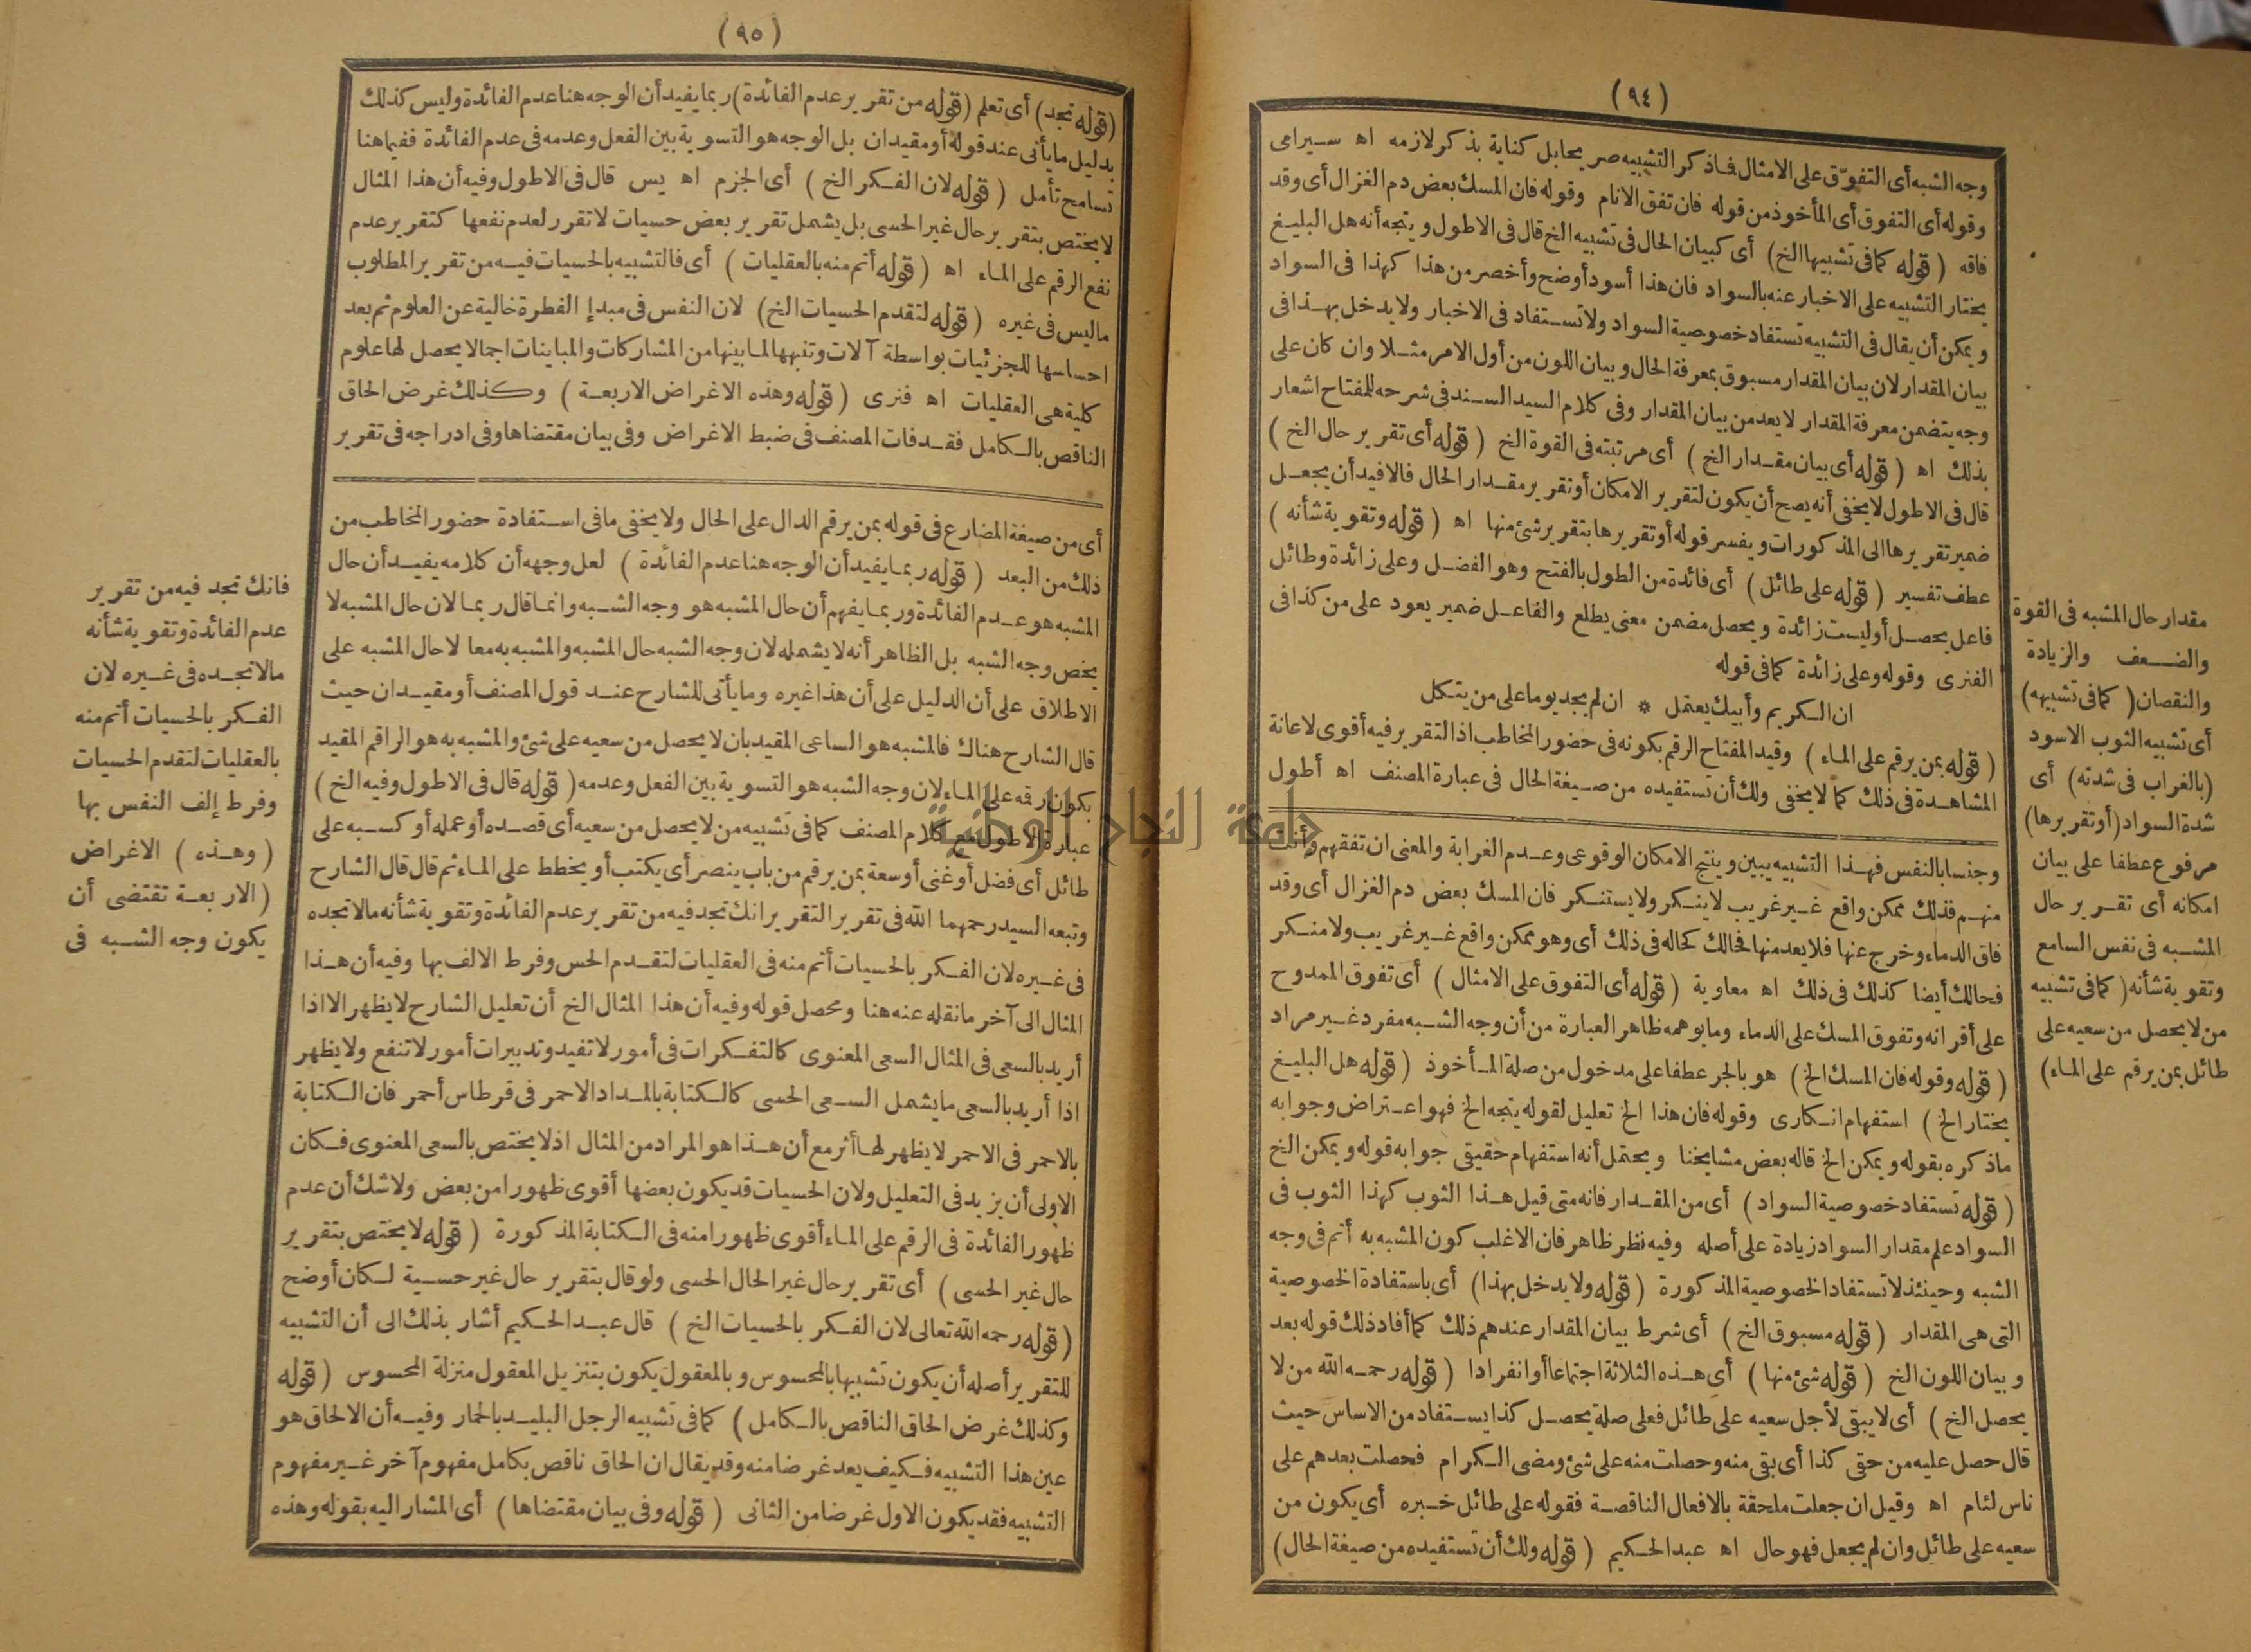 (٩٤)
وجه الشبه أى التفوّق على الامثال فاذ كر التشبيه صريحا بل كناية بذكر لازمه اه سيرامى
وقوله أى التفوق أى المأخوذ من قوله فان تفق الانام وقوله فان المسك بعض دم الغزال أى وقد
فاقه (قوله كما فى تشبيهها الخ) أى كبيان الحال فى تشبيه الخ قال فى الاطول ويتجه أنه هل البليغ
يختار التشبيه على الاخبار عنه بالسواد فان هذا أسود أوضح وأخصر من هذا كهذا فى السواد
ويمكن أن يقال فى التشبيه تستفاد خصوصية السواد ولا تستفاد فى الاخبار ولا يدخل بهذا فى
بيان المقدار لان بيان المقدار مسبوق بمعرفة الحال وبيان اللون من أول الامر مثلا وان كان على
وجه يتضمن معرفة المقدار لا يعد من بيان المقدار وفى كلام السيد السند فى شرحه للمفتاح اشعار
بذلك اه (قوله أى بيان مقدار الخ) أى مرتبته فى القوة الخ (قوله أى تقرير حال الخ)
قال فى الاطول لا يخفى أنه يصح أن يكون لتقرير الامكان أو تقرير مقدار الحال فالافيد أن يجعل
ضمير تقريرها الى المذكورات ويفسر قوله أو تقريرها بتقرير شئ منها اه (قوله وتقوية شأنه)
عطف تفسير (قوله على طائل) أى فائدة من الطول بالفتح وهو الفضل وعلى زائدة وطائل
فاعل يحصل أو ليست زائدة ويحصل مضمن معنى يطلع والفاعل ضمير يعود على من كذا فى
الفنرى وقوله وعلى زائدة كما فى قوله
ان الكريم وأبيك يعتمل * ان لم يجد يوما على من يتكل
(قوله بمن يرقم على الماء) وقيد المفتاح الرقم بكونه فى حضور المخاطب اذ التقرير فيه أقوى لاعانة
المشاهدة فى ذلك كما لا يخفى ولك أن تستفيده من صيغة الحال فى عبارة المصنف اه أطول
وجنسا بالنفس فهذا التشبيه يبين وينتج الامكان الوقوعى وعدم الغرابة والمعنى ان تفقهم وأنت
منهم فذلك ممكن واقع غير غريب لا ينكر ولا يستنكر فان المسك بعض دم الغزال أى وقد
فاق الدماء وخرج عنها فلا يعد منها فحالك كحاله فى ذلك أى وهو ممكن واقع غير غريب ولا منكر
فحالك أيضا كذلك فى ذلك اه معاوية (قوله أى التفوق على الامثال) أى تفوق الممدوح
على أقرانه وتفوق المسك على الدماء وما يوهمه ظاهر العبارة من أن وجه الشبه مفرد غير مراد
(قوله وقوله فان المسك الخ) هو بالجر عطفا على مدخول من صلة المأخوذ (قوله هل البليغ
يختار الخ) استفهام انكارى وقوله فان هذا الخ تعليل لقوله يتجه الخ فهو اعتراض وجوابه
ماذكره بقوله ويمكن الخ قاله بعض مشايخنا ويحتمل أنه استفهام حقيقى جوابه قوله ويمكن الخ
(قوله تستفاد خصوصية السواد) أى من المقدار فانه متى قيل هذا الثوب كهذا الثوب فى
السواد علم مقدار السواد زيادة على أصله وفيه نظر ظاهر فان الاغلب كون المشبه به أتم فى وجه
الشبه وحينئذ لا تستفاد الخصوصية المذكورة (قوله ولا يدخل بهذا) أى باستفادة الخصوصية
التى هى المقدار (قوله مسبوق الخ) أى شرط بيان المقدار عندهم ذلك كما أفاد ذلك قوله بعد
وبيان اللون الخ (قوله شئ منها) أى هذه الثلاثة اجتماعا أو انفرادا (قوله رحمه الله من لا
يحصل الخ) أى لا يبقى لأجل سعيه على طائل فعلى صلة يحصل كذا يستفاد من الاساس حيث
قال حصل عليه من حقى كذا أى بقى منه وحصلت منه على شئ ومضى الكرام فحصلت بعدهم على
ناس لئام اه وقيل ان جعلت ملحقة بالافعال الناقصة فقوله على طائل خبره أى يكون من
سعيه على طائل وان لم يجعل فهو حال اه عبد الحكيم (قوله ولك أن تستفيده من صيغة الحال)
مقدار حال المشبه فى القوة
والضعف والزيادة
والنقصان (كما فى تشبيهه)
أى تشبيه الثوب الاسود
(بالغراب فى شدته) أى
شدة السواد (أو تقريرها)
مرفوع عطفا على بيان
امكانه أى تقرير حال
المشبه فى نفس السامع
وتقوية شأنه (كما فى تشبيه
من لا يحصل من سعيه على
طائل بمن يرقم على الماء)
(٩٥)
(قوله تجد) أى تعلم (قوله من تقرير عدم الفائدة) ربما يفيد أن الوجه هنا عدم الفائدة وليس كذلك
بدليل ما يأتى عند قوله أو مقيدان بل الوجه هو التسوية بين الفعل وعدمه فى عدم الفائدة ففيما هنا
تسامح تأمل (قوله لان الفكر الخ) أى الجزم اه يس قال فى الاطول وفيه أن هذا المثال
لا يختص بتقرير حال غير الحسى بل يشمل تقرير بعض حسيات لا تقرر لعدم نفعها كتقرير عدم
نفع الرقم على الماء اه (قوله أتم منه بالعقليات) أى فالتشبيه بالحسيات فيه من تقرير المطلوب
ما ليس فى غيره (قوله لتقدم الحسيات الخ) لان النفس فى مبدإ الفطرة خالية عن العلوم ثم بعد
احساسها للجزئيات بواسطة آلات وتنبهها لما بينها من المشاركات والمباينات اجمالا يحصل لها علوم
كلية هى العقليات اه فنرى (قوله وهذه الاغراض الاربعة) وكذلك غرض الحاق
الناقص بالكامل فقد فات المصنف فى ضبط الاغراض وفى بيان مقتضاها وفى ادراجه فى تقرير
أى من صيغة المضارع فى قوله بمن يرقم الدال على الحال ولا يخفى ما فى استفادة حضور المخاطب من
ذلك من البعد (قوله ربما يفيد أن الوجه هنا عدم الفائدة) لعل وجهه أن كلامه يفيد أن حال
المشبه هو عدم الفائدة وربما يفهم أن حال المشبه هو وجه الشبه وانما قال ربما لان حال المشبه لا
يخص وجه الشبه بل الظاهر أنه لا يشمله لان وجه الشبه حال المشبه والمشبه به معا لا حال المشبه على
الاطلاق على أن الدليل على أن هذا غيره وما يأتى للشارح عند قول المصنف أو مقيدان حيث
قال الشارح هناك فالمشبه هو الساعى المقيد بان لا يحصل من سعيه على شئ والمشبه به هو الراقم المقيد
بكون رقه على الماء لان وجه الشبه هو التسوية بين الفعل وعدمه (قوله قال فى الاطول وفيه الخ)
عبارة الاطول مع كلام المصنف كما فى تشبيه من لا يحصل من سعيه أى قصده أو عمله أو كسبه على
طائل أى فضل أو غنى أو سعة بمن يرقم من باب ينصر أى يكتب أو يخطط على الماء ثم قال قال الشارح
وتبعه السيد رحمهما الله فى تقرير التقرير انك تجد فيه من تقرير عدم الفائدة وتقوية شأنه مالا تجده
فى غيره لان الفكر بالحسيات أتم منه فى العقليات لتقدم الحس وفرط الالف بها وفيه أن هذا
المثال الى آخر ما نقله عنه هنا ومحصل قوله وفيه أن هذا المثال الخ أن تعليل الشارح لا يظهر الا اذا
أريد بالسعى فى المثال السعى المعنوى كالتفكرات فى أمور لا تفيد وتدبيرات أمور لا تنفع ولا يظهر
اذا أريد بالسعى ما يشمل السعى الحسى كالكتابة بالمداد الاحمر فى قرطاس أحمر فان الكتابة
بالاحمر فى الاحمر لا يظهر لها أثر مع أن هذا هو المراد من المثال اذ لا يختص بالسعى المعنوى فكان
الاولى أن يزيد فى التعليل ولان الحسيات قد يكون بعضها أقوى ظهورا من بعض ولا شك أن عدم
ظهور الفائدة فى الرقم على الماء أقوى ظهورا منه فى الكتابة المذكورة (قوله لا يختص بتقرير
حال غير الحسى) أى تقرير حال غير الحال الحسى ولو قال بتقرير حال غير حسية لكان أوضح
(قوله رحمه الله تعالى لان الفكر بالحسيات الخ) قال عبد الحكيم أشار بذلك الى أن التشبيه
للتقرير أصله أن يكون تشبيها بالمحسوس وبالمعقول يكون بتنزيل المعقول منزلة المحسوس (قوله
وكذلك غرض الحاق الناقص بالكامل) كما فى تشبيه الرجل البليد بالحمار وفيه أن الالحاق هو
عين هذا التشبيه فكيف يعد غرضا منه وقد يقال ان الحاق ناقص بكامل مفهوم آخر غير مفهوم
التشبيه فقد يكون الاول غرضا من الثانى (قوله وفى بيان مقتضاها) أى المشار اليه بقوله وهذه
فانك تجد فيه من تقرير
عدم الفائدة وتقوية شأنه
مالا تجده فى غيره لان
الفكر بالحسيات أتم منه
بالعقليات لتقدم الحسيات
وفرط إلف النفس بها
(وهذه) الاغراض
(الاربعة تقتضى أن
يكون وجه الشبه فى
جامعة النجاح الوطنية